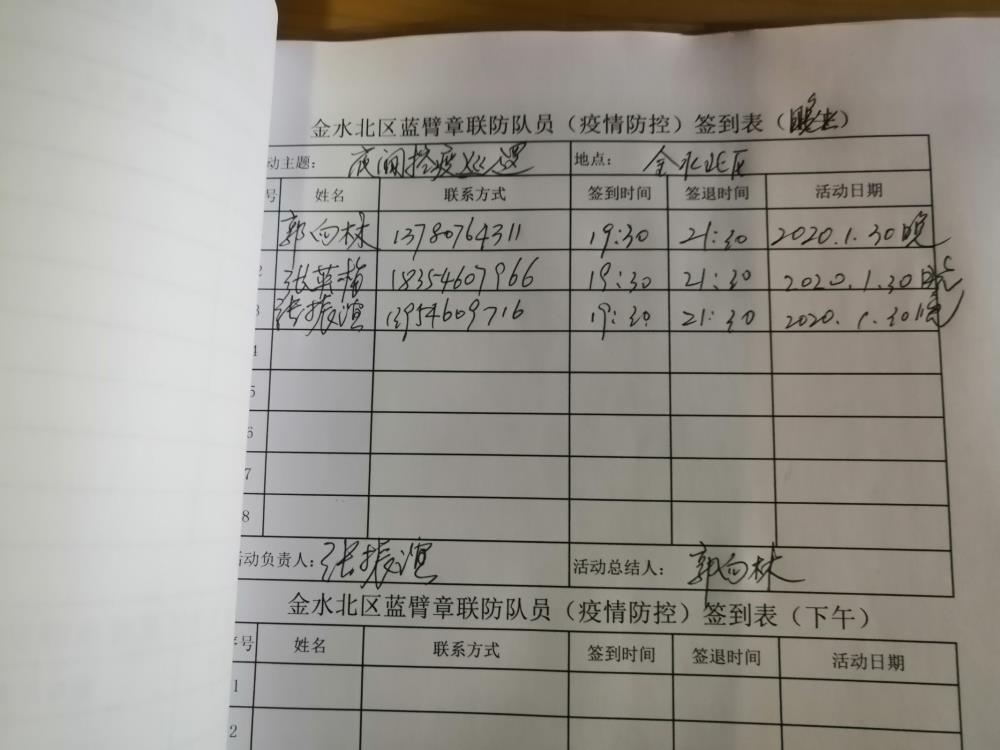 金水北区蓝臂章联防队员（疫情防控）签到表（晚上）
动主题： 夜间控疫巡逻 地点： 金水北区
号 姓名 联系方式 签到时间 签退时间 活动日期
郭向林 13780764311 19:30 21:30 2020.1.30晚
2 张英梅 18354607966 19:30 21:30 2020.1.30晚
3 张振滨 13954609716 19:30 21:30 2020.1.30晚
4
5
6
7
8
活动负责人： 张振滨 活动总结人： 郭向林
金水北区蓝臂章联防队员（疫情防控）签到表（下午）
序号 姓名 联系方式 签到时间 签退时间 活动日期
1
2